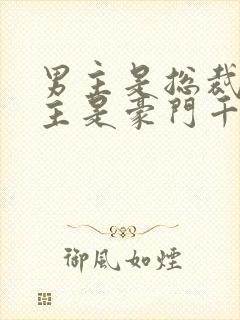 男主是总裁
主是豪門千
御風如煙